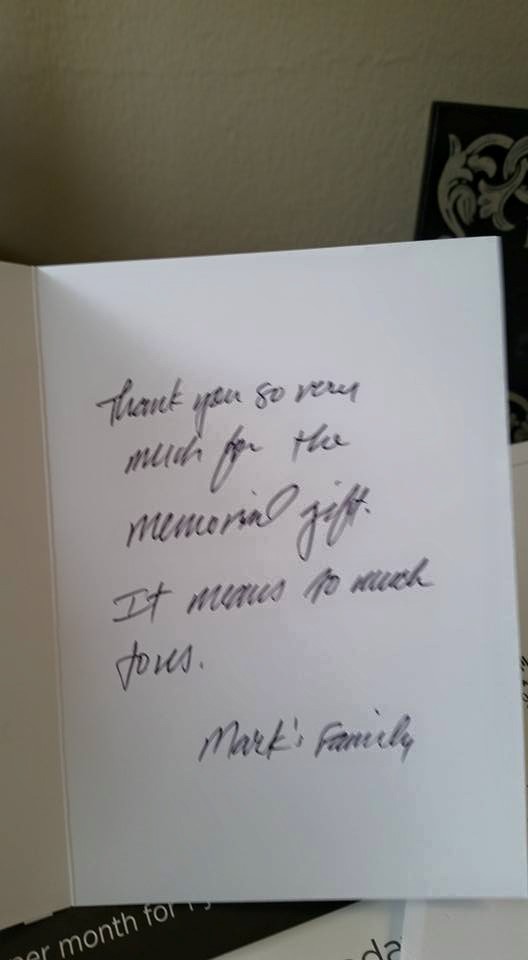 Thank you so very
much for the
memorial gift.
It means so much
to us.
Mark's Family
per month for
da